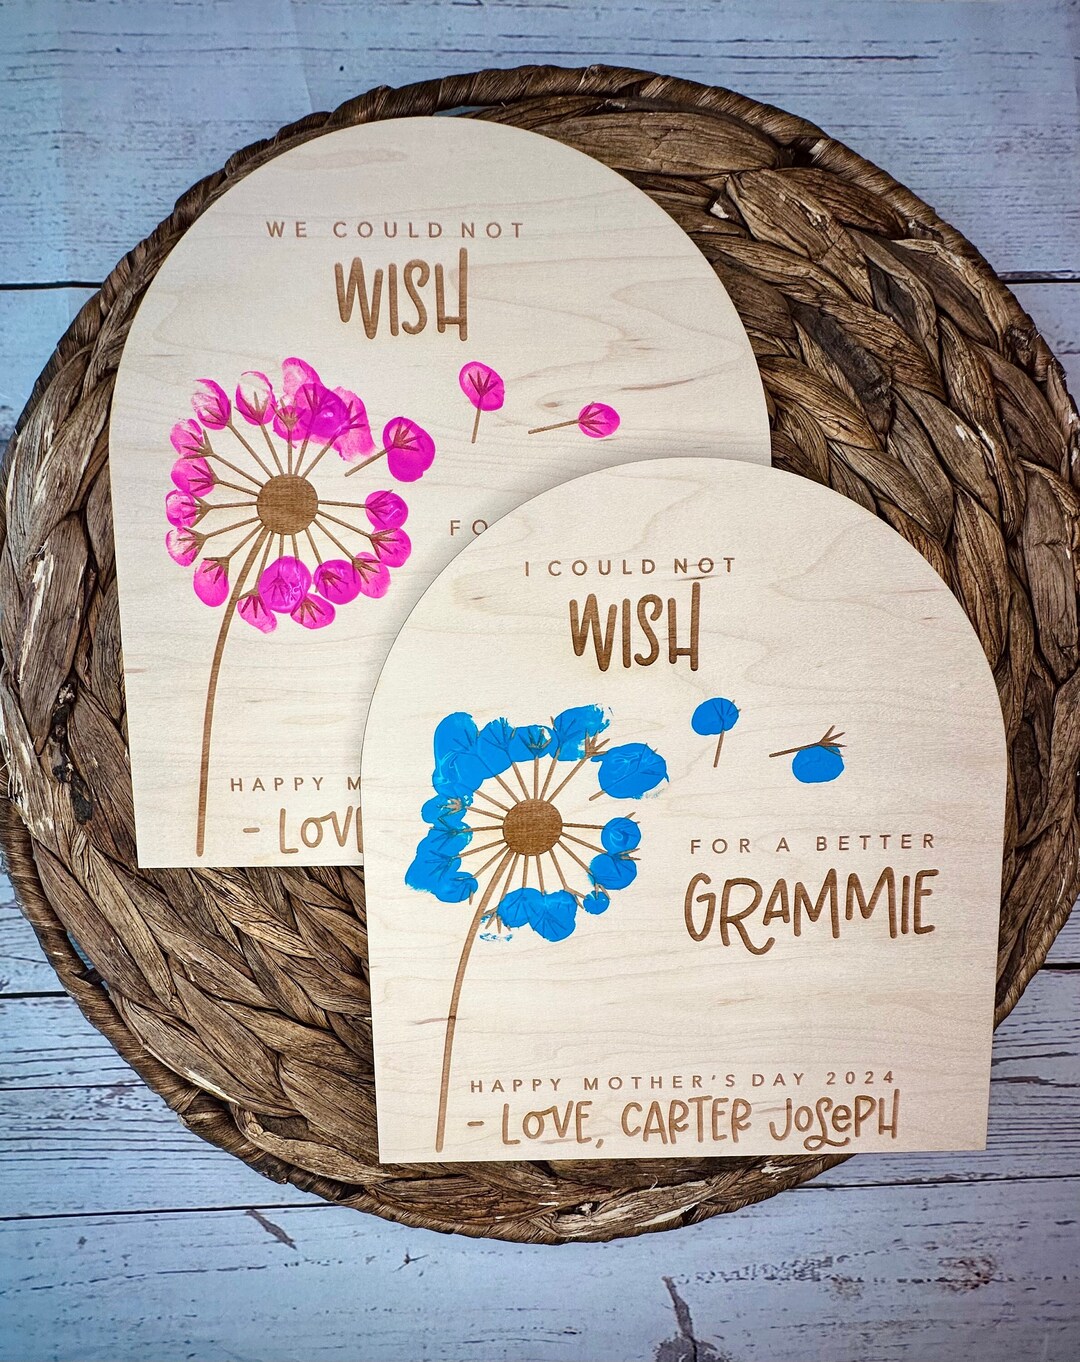 WE COULD NOT
WISH
FO
HAPPY M
- LOVE
I COULD NOT
WISH
FOR A BETTER
GRAMMIE
HAPPY MOTHER'S DAY 2024
- LOVE, CARTER JOSEPH